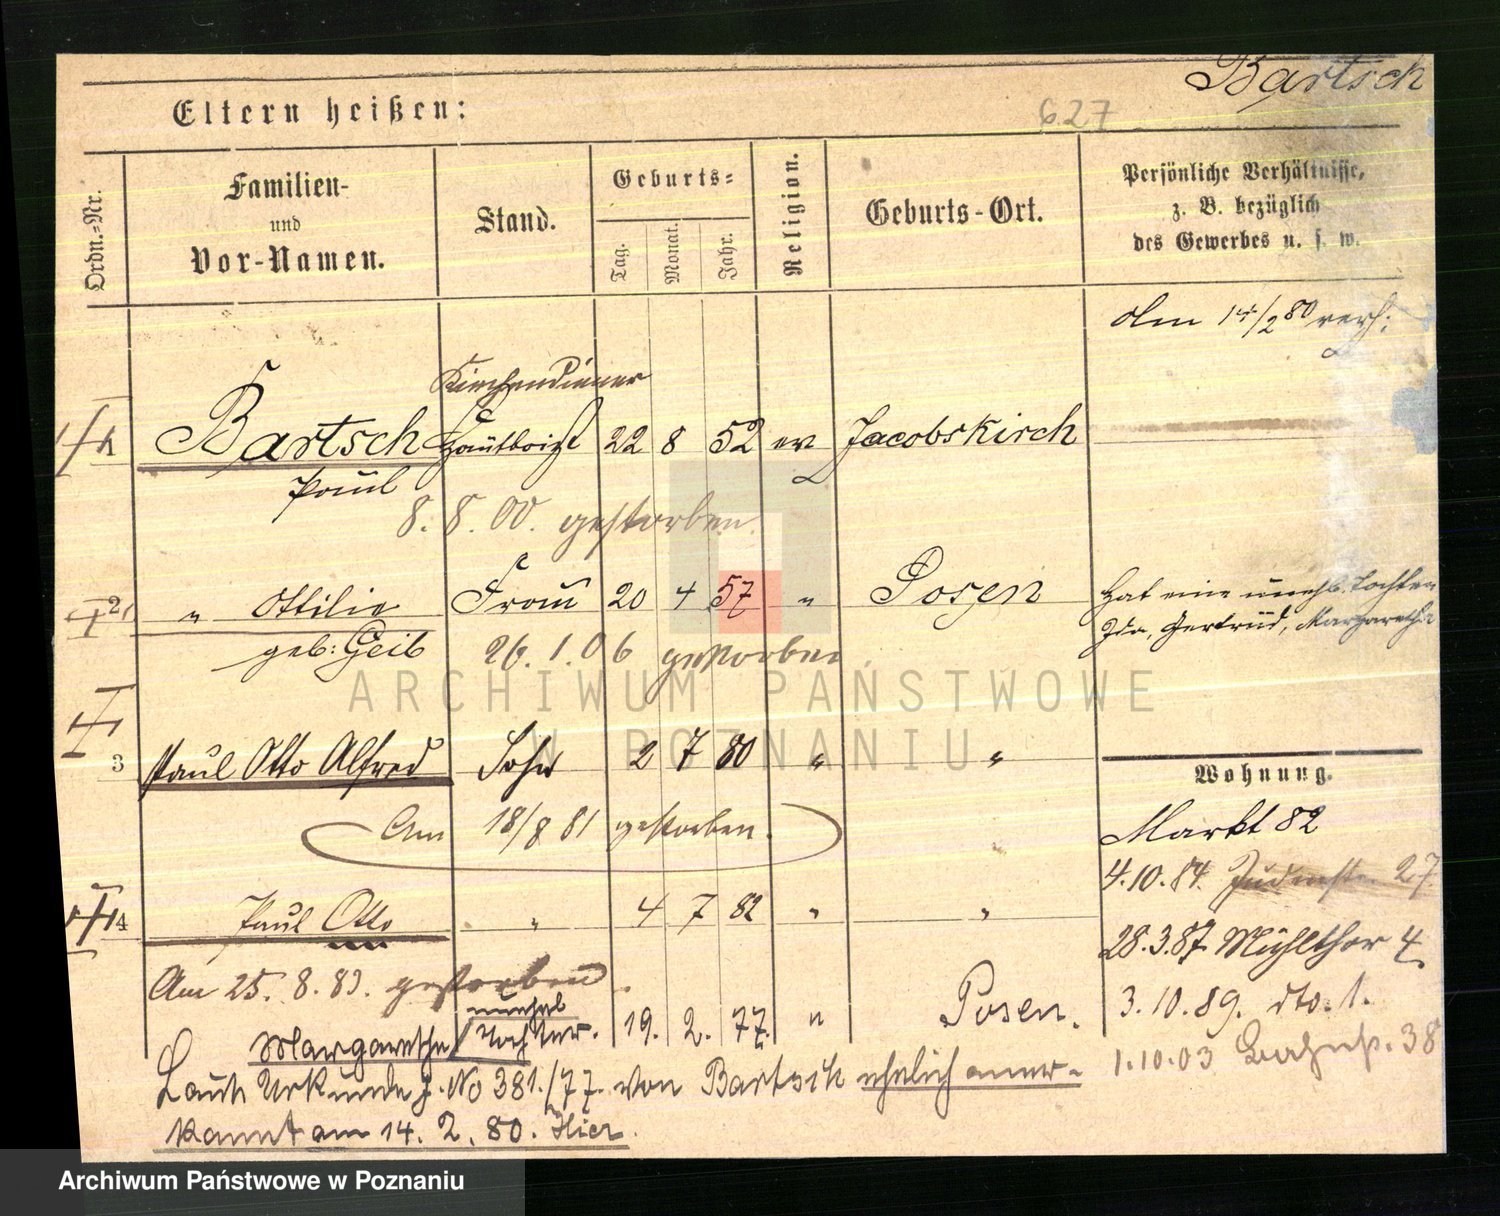 Bartsch
Eltern heißen:
627
Ordn.-Nr.
Familien-
und
Vor-Namen.
Stand.
Geburts-
Tag.
Monat.
Jahr.
Religion.
Geburts-Ort.
Persönliche Verhältnisse,
z. B. bezüglich
des Gewerbes u. s. w.
Am 14/2 80 verh:
Kirchendiener
1 Bartsch Hautboist 22 8 52 ev Jacobskirch
Paul
8. 8. 00. gestorben.
2, " Ottilie Frau 20 4 57 " Posen
geb: Geib
Hat eine unehl. Tochter
Ida, Gertrud, Margaretha
26. 1. 06 gestorben
ARCHIWUM PAŃSTWOWE
W POZNANIU
3 Paul Otto Alfred Sohn 2 7 80 " "
Am 18/8 81 gestorben.
4 Paul Otto " 4 7 82 " "
Am 25. 8. 83. gestorben.
unehel
Margarethe Tochter. 19. 2. 77. " Posen.
Laut Urkunde J. No 381./77. von Bartsch ehelich aner-
kannt am 14. 2. 80. Hier.
Wohnung.
Markt 82
4.10.84. Judenstr. 27.
28.3.87. Mühlthor 4
3.10.89. dto. 1.
1.10.03 38
Archiwum Państwowe w Poznaniu